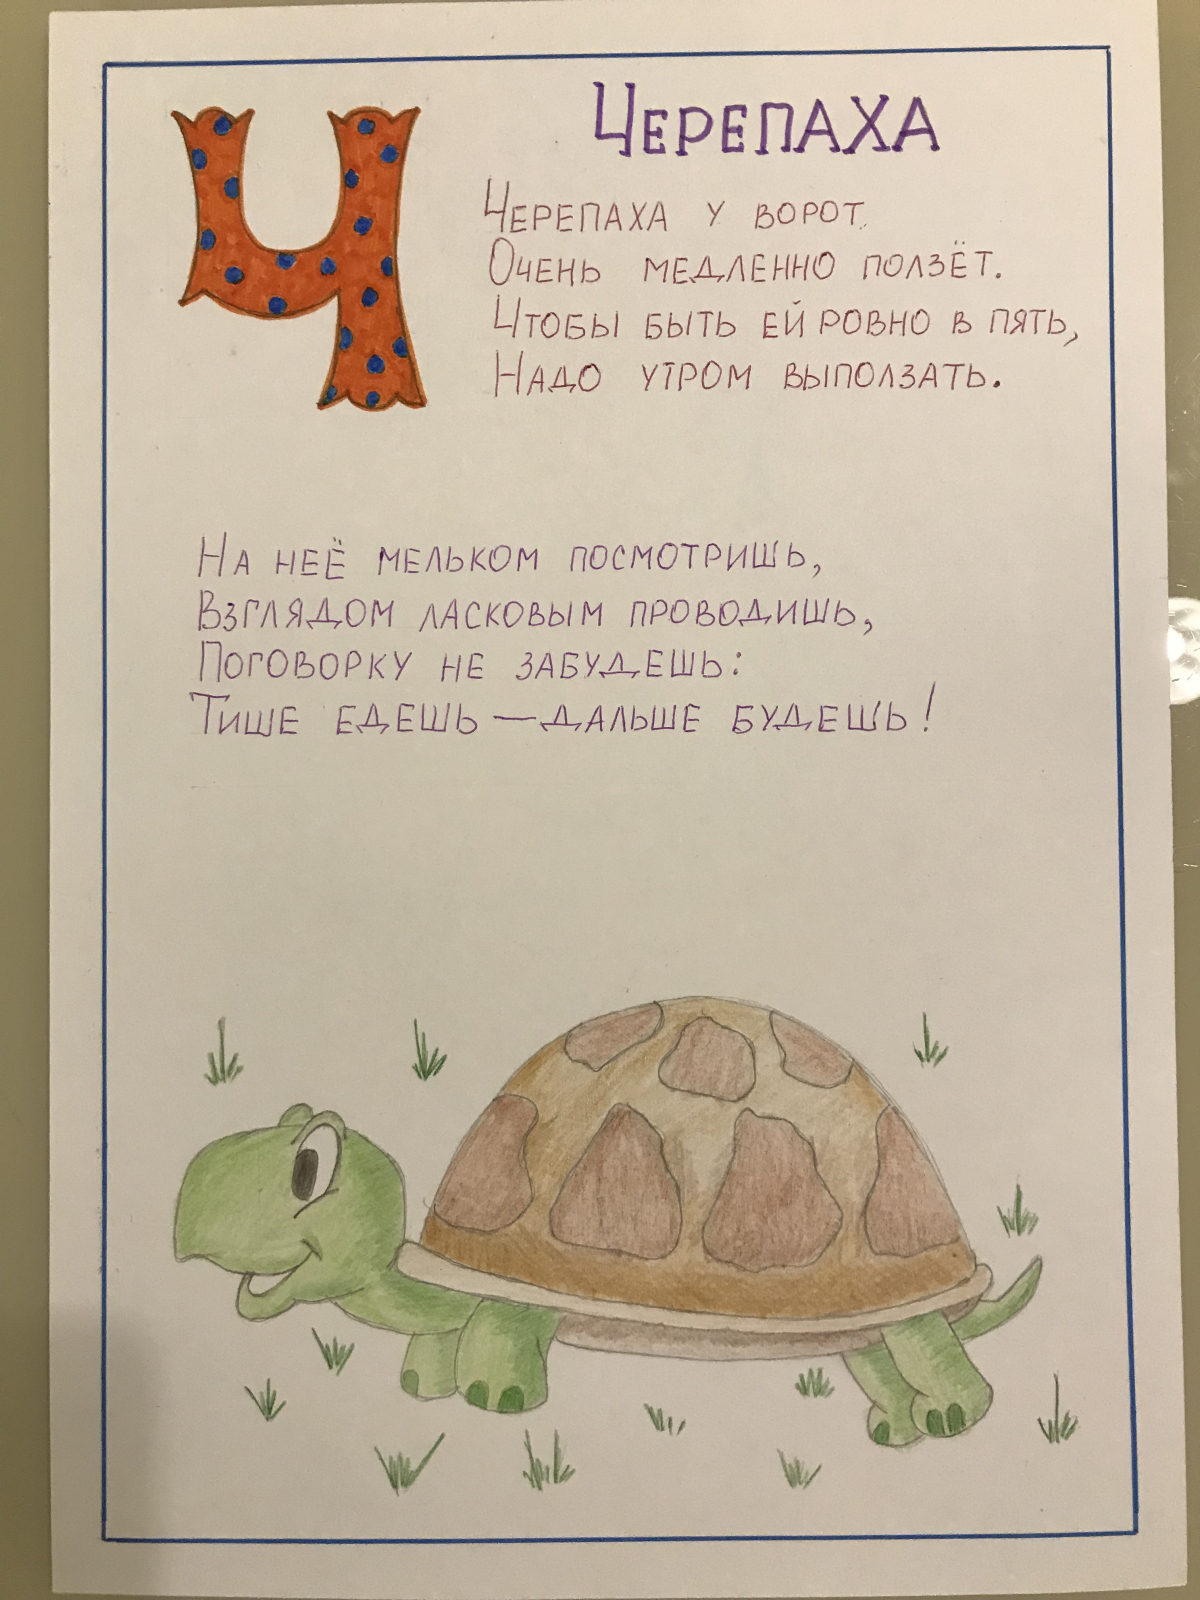 Ч
Черепаха
Черепаха у ворот
Очень медленно ползёт.
Чтобы быть ей ровно в пять,
Надо утром выползать.
На неё мельком посмотришь,
Взглядом ласковым проводишь,
Поговорку не забудешь:
Тише едешь — дальше будешь!